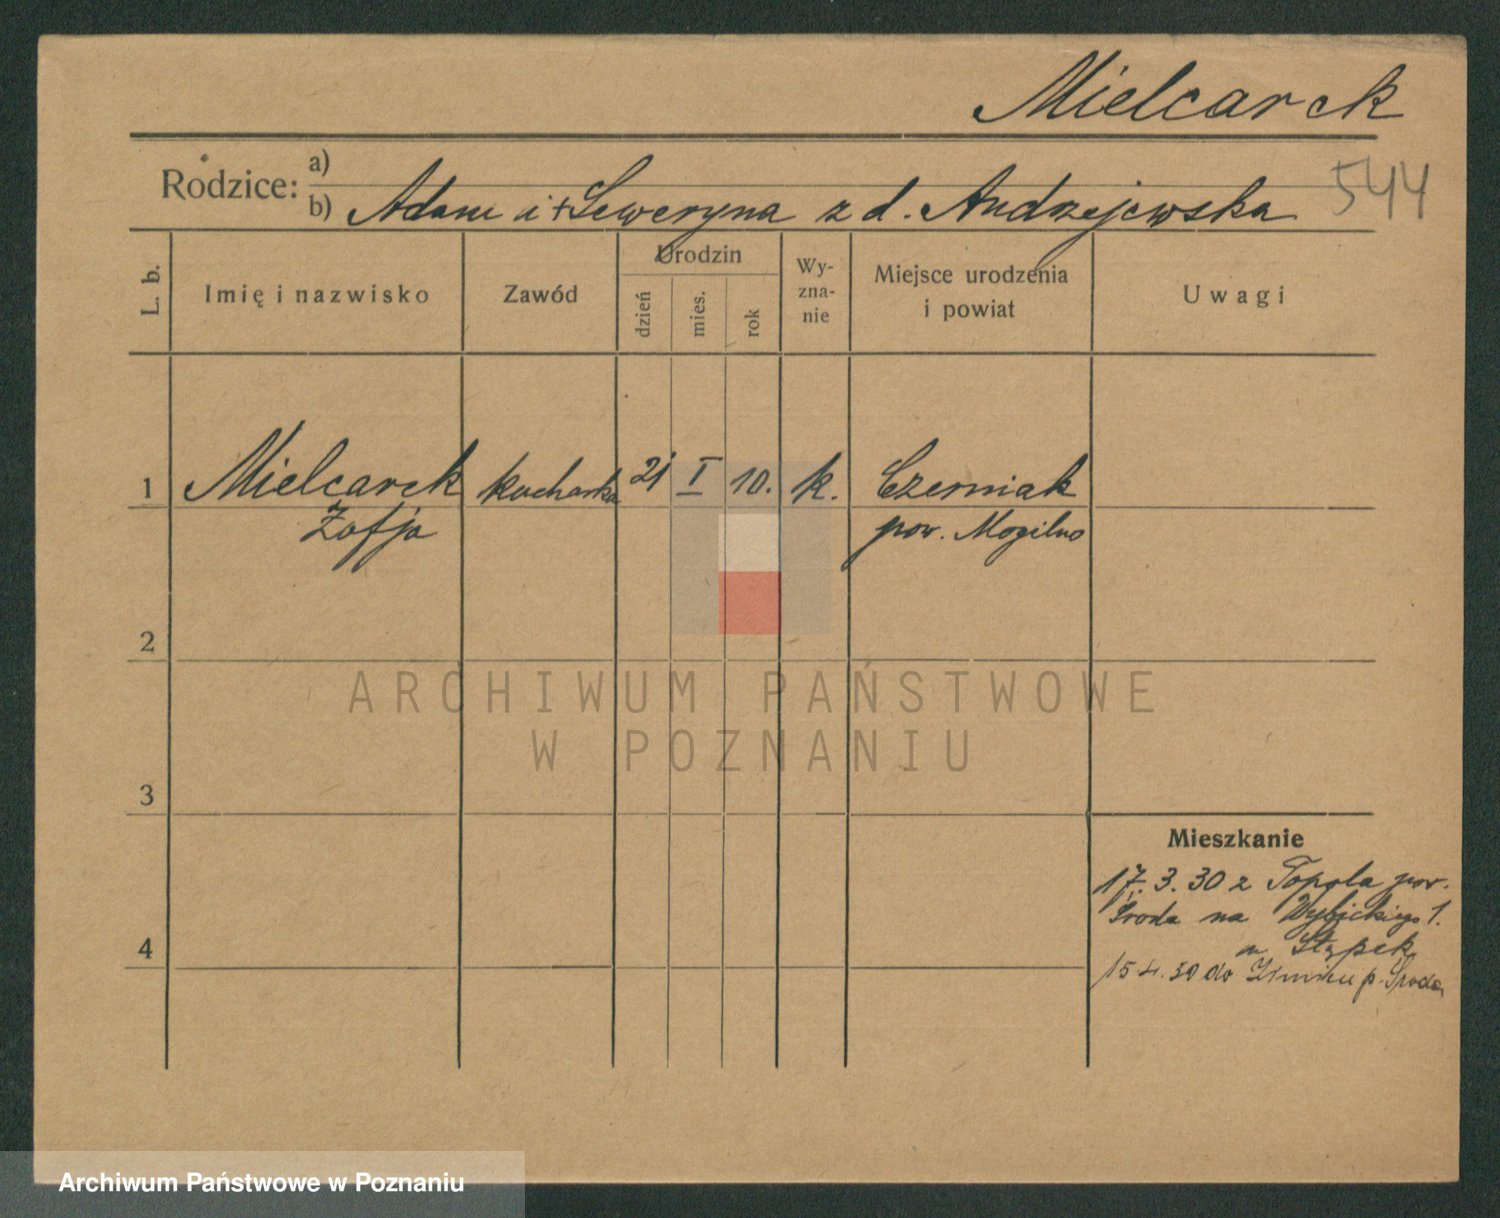 Mielcarek
544
Rodzice:
a)
b) Adam i + Seweryna z d. Andrzejewska
L. b.
Imię i nazwisko
Zawód
Urodzin
dzień
mies.
rok
Wy-
zna-
nie
Miejsce urodzenia
i powiat
Uwagi
1 Mielcarek kucharka 21 I 10. k. Czerniak
Zofja pow. Mogilno
2
ARCHIWUM PAŃSTWOWE
W POZNANIU
3
Mieszkanie
17.3.30 z Topola pow.
Środa na Wybickiego 1.
4
15 4. 30 do p. Środa
Archiwum Państwowe w Poznaniu